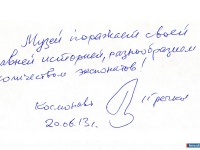 Музей поражает своей
давней историей, разнообразием
количеством экспонатов!
Космонавт
20.06.13г.